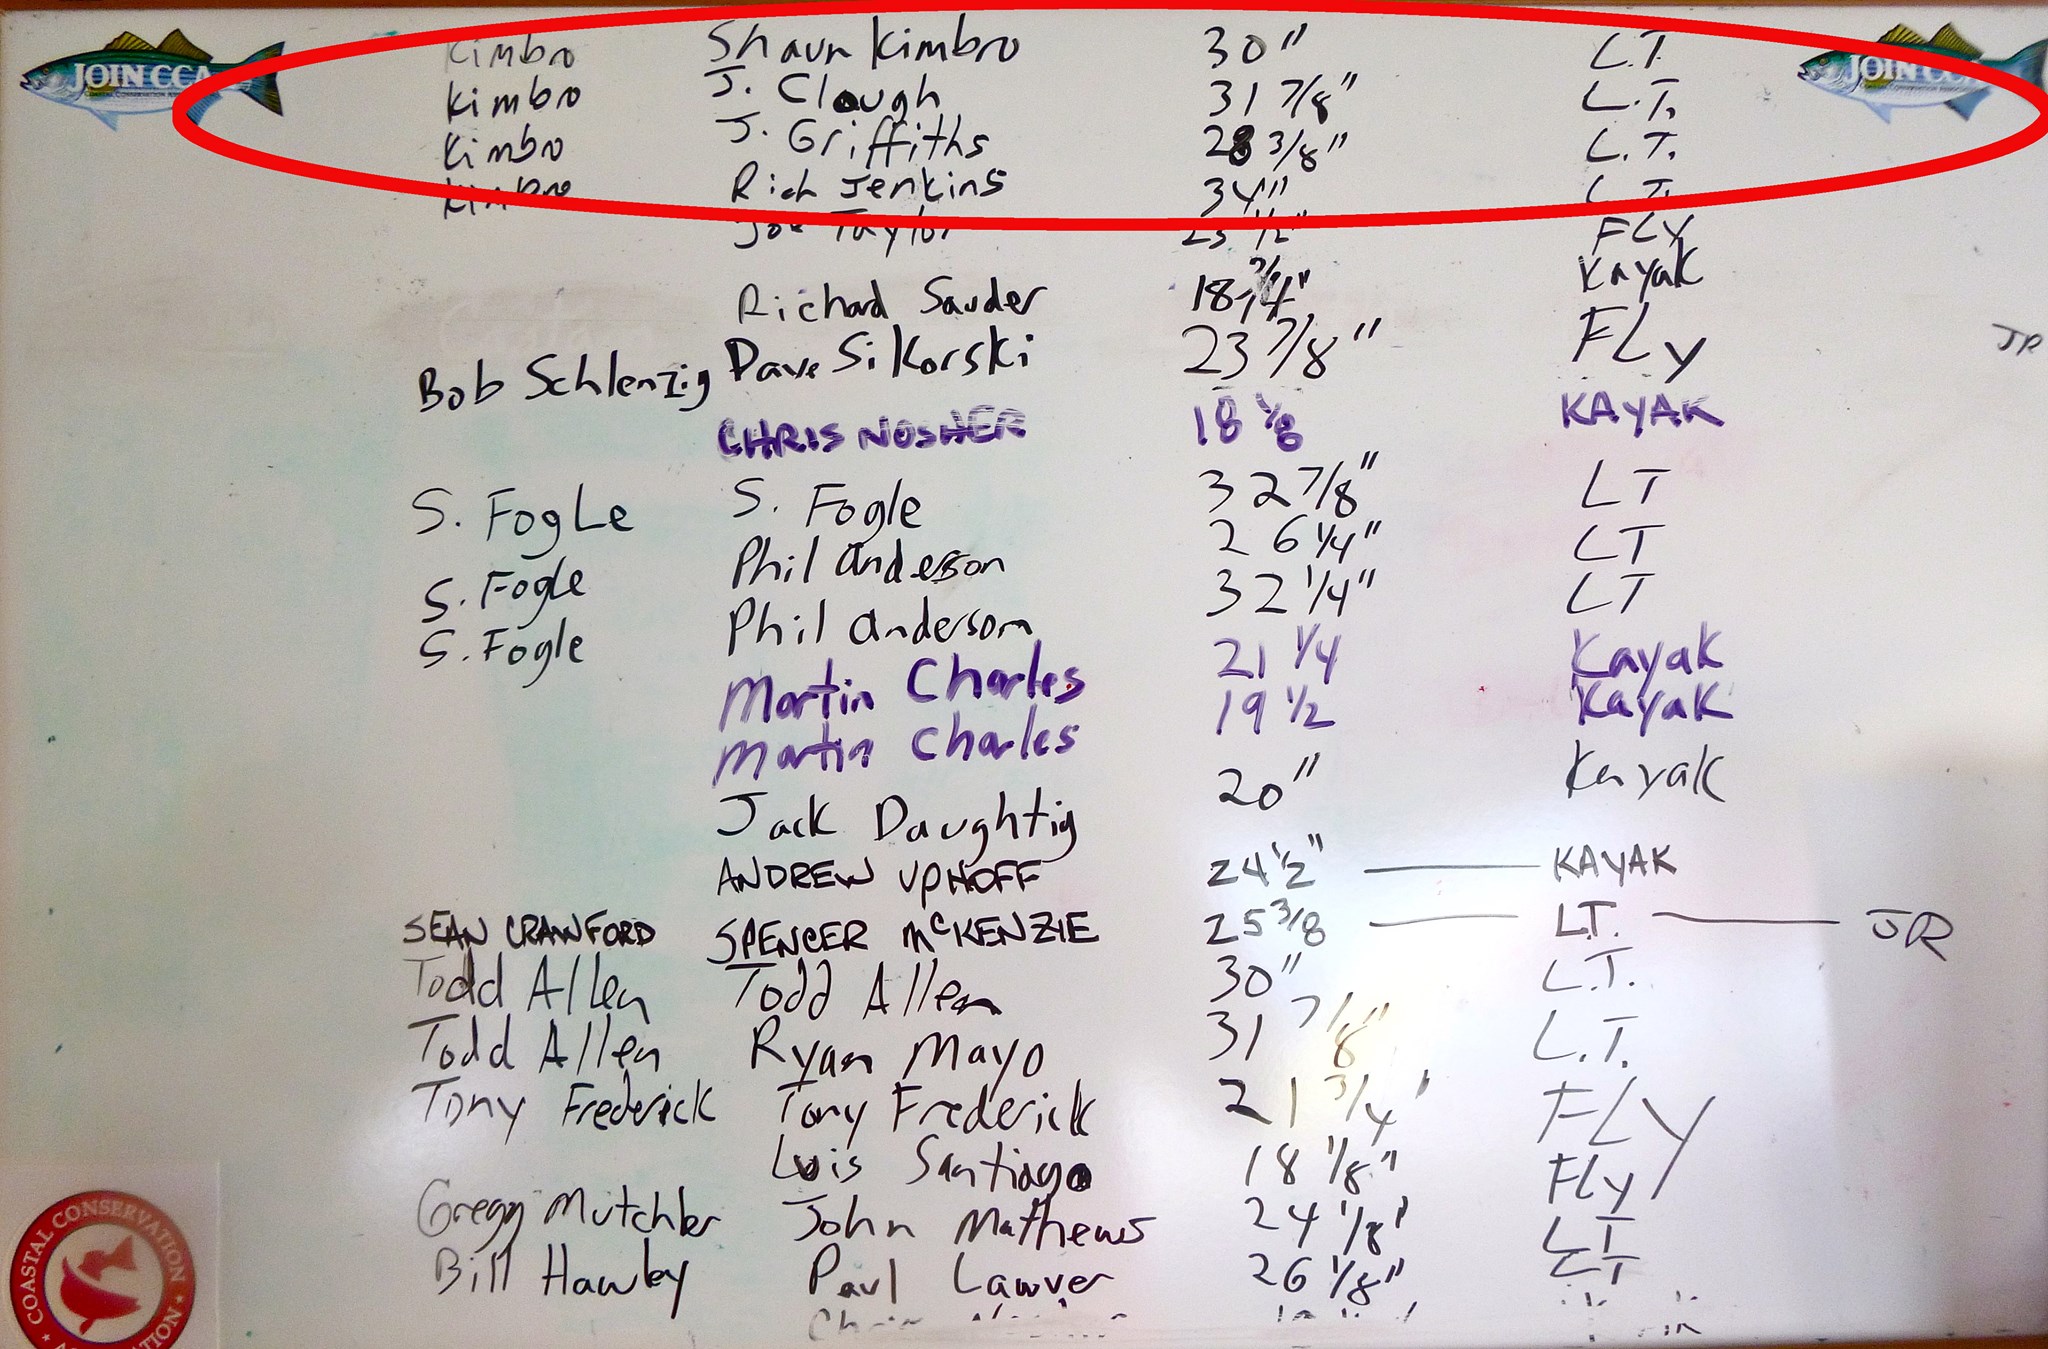 JOIN CCA
JOIN CCA
Kimbro Shaun Kimbro 30" L.T.
Kimbro J. Clough 31 7/8" L.T.
Kimbro J. Griffiths 28 3/8" L.T.
Kimbro Rich Jenkins 34" L.T.
Joe Taylor 23 1/2" FLy
Richard Sauder 18 Kayak
Bob Schlenzig Dave Sikorski 23 7/8" FLy JR
CHRIS NOSHER 18 1/8 KAYAK
S. FogLe S. Fogle 32 7/8" LT
S. Fogle Phil Anderson 26 1/4" LT
S. Fogle Phil Anderson 32 1/4" LT
Martin Charles 21 1/4 Kayak
Martin Charles 19 1/2 Kayak
Jack Daughtig 20" Kayak
ANDREW UPHOFF 24 1/2" KAYAK
SEAN CRAWFORD SPENCER McKENZIE 25 3/8 L.T. JR
Todd Allen Todd Allen 30" L.T.
Todd Allen Ryan Mayo 31 7/8" L.T.
Tony Frederick Tony Frederick 21 3/4" FLY
Luis Santiago 18 1/8" FLy
Gregg Mutchler John Mathews 24 1/8" LT
Bill Hawley Paul Lawver 26 1/8" LT
COASTAL CONSERVATION